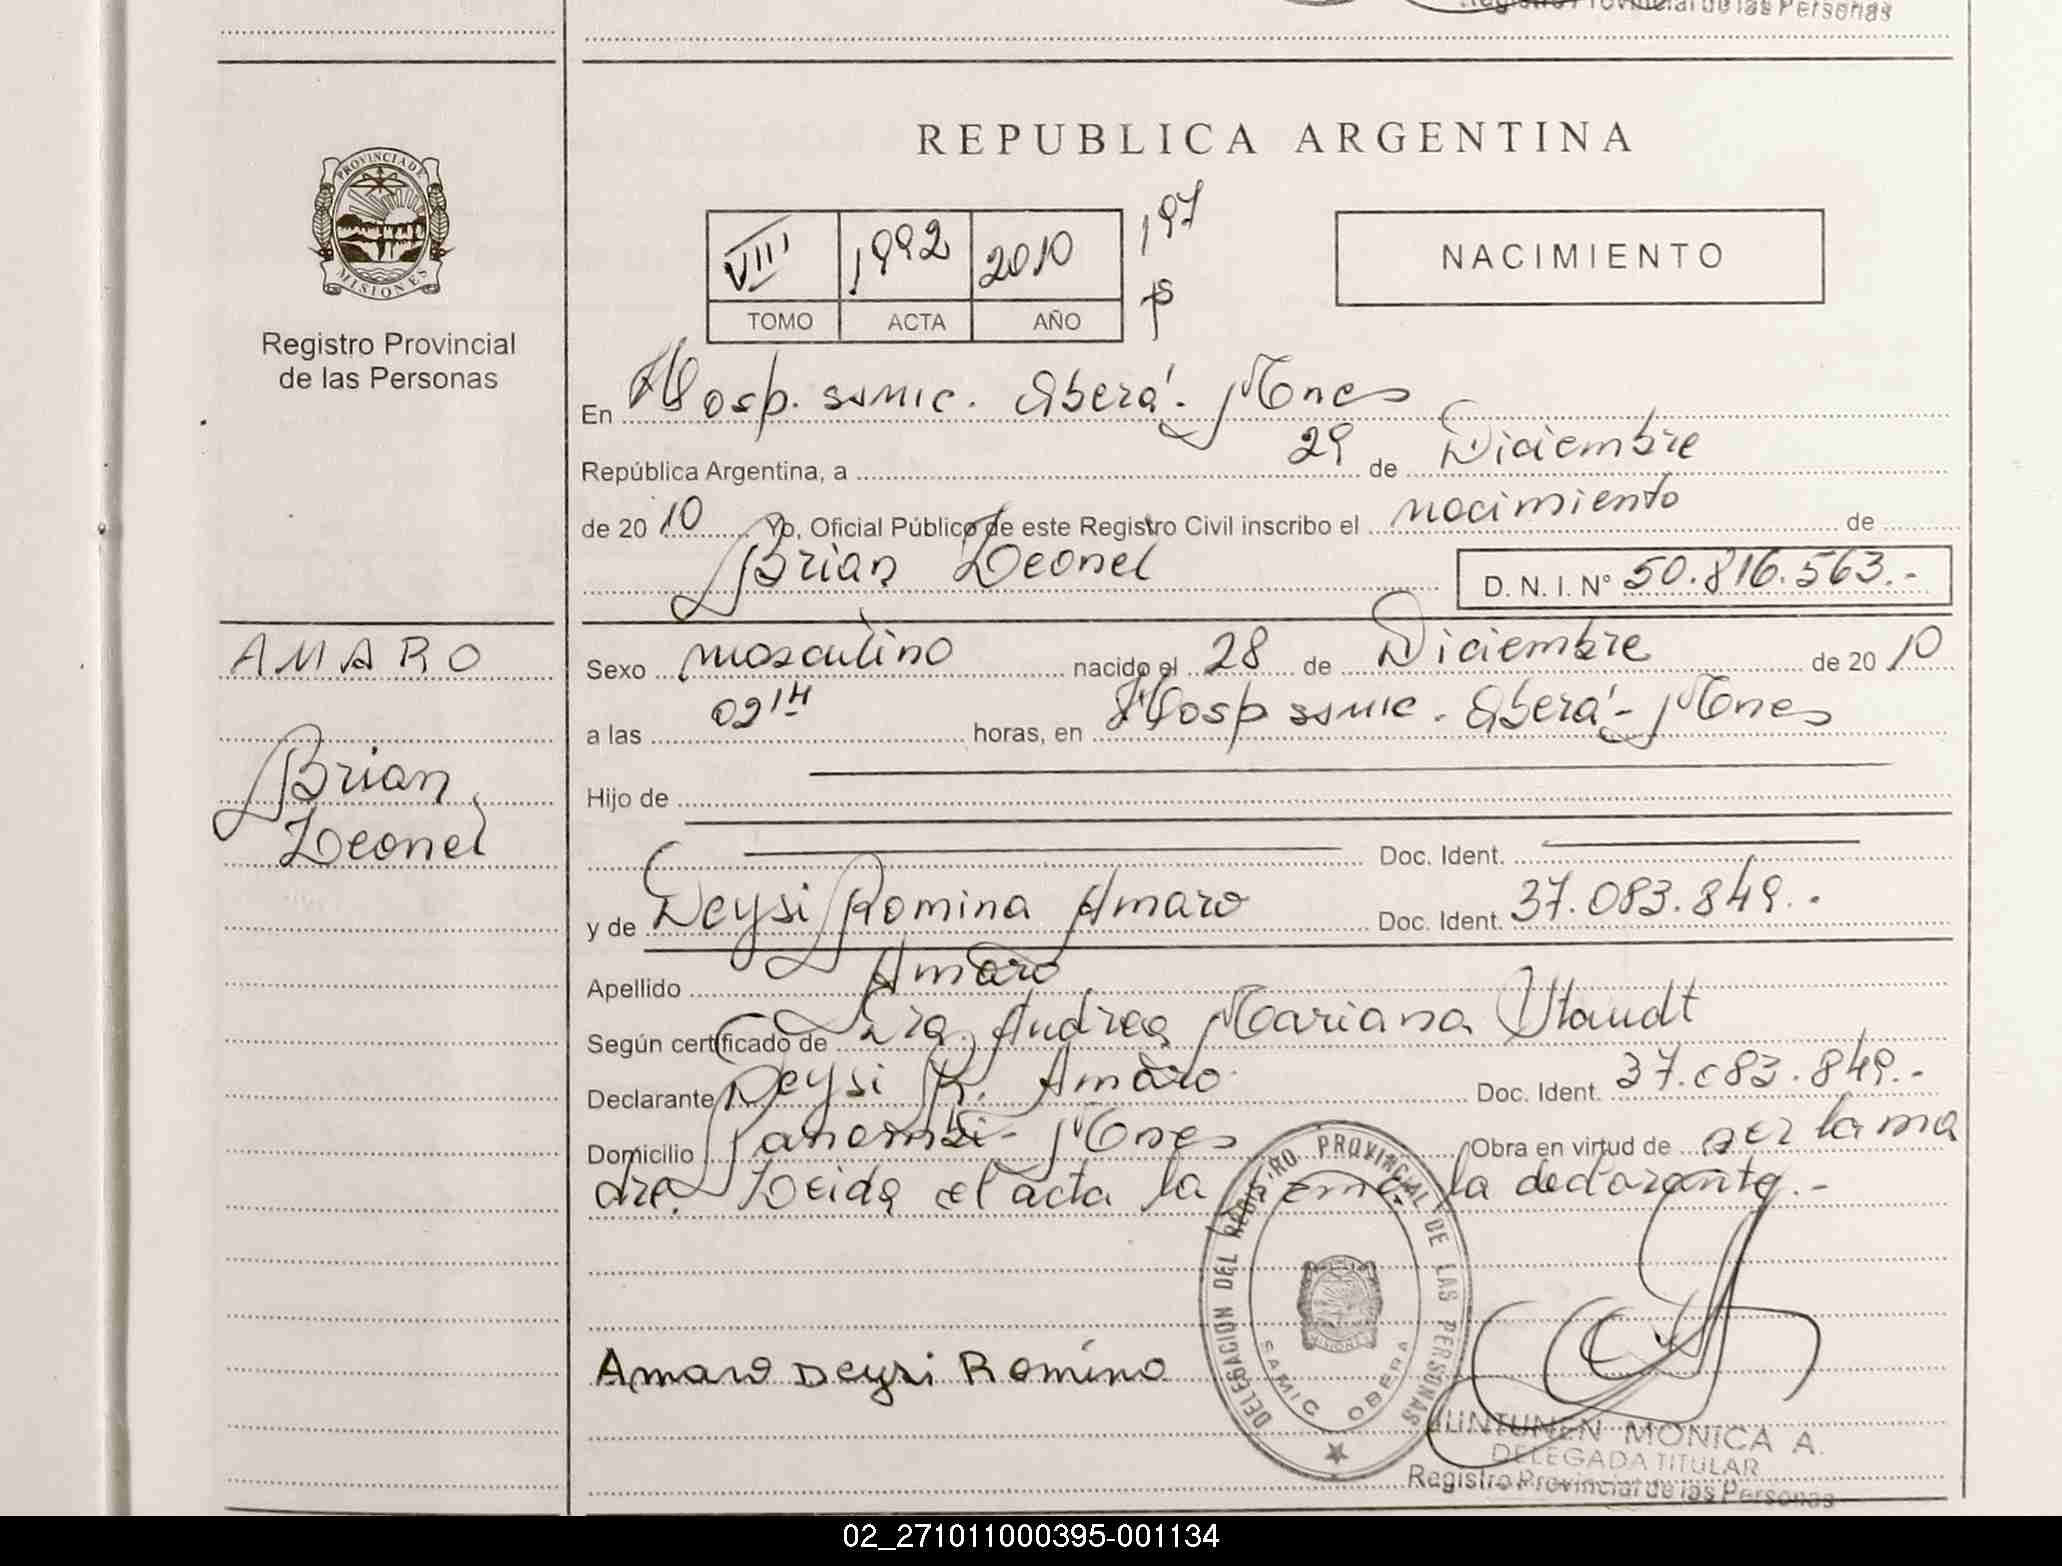 Registro Provincial de las Personas
REPUBLICA ARGENTINA
PROVINCIA DE
MISIONES
Registro Provincial
de las Personas
VIII 1992 2010 197
TOMO ACTA AÑO
NACIMIENTO
En Hosp. SAMIC. Oberá - Mnes
República Argentina, a 29 de Diciembre
de 2010 Yo, Oficial Público de este Registro Civil inscribo el nacimiento de
Brian Leonel D. N. I. Nº 50.816.563.-
AMARO
Brian
Leonel
Sexo masculino nacido el 28 de Diciembre de 2010
a las horas, en Hosp SAMIC. Oberá - Mnes
Hijo de
Doc. Ident.
y de Deysi Romina Amaro Doc. Ident. 37.083.849.-
Apellido Amaro
Según certificado de Dra. Andrea Mariana
Declarante Deysi R. Amaro Doc. Ident. 37.083.849.-
Domicilio Panambi - Mnes Obra en virtud de ser la ma
dre. Leida el acta la la declarante.-
DELEGACION DEL REGISTRO PROVINCIAL DE LAS PERSONAS
SAMIC OBERA
Amaro Deysi Romina
JUNTUNEN MONICA A.
DELEGADA TITULAR
Registro Provincial de las Personas
02_271011000395-001134